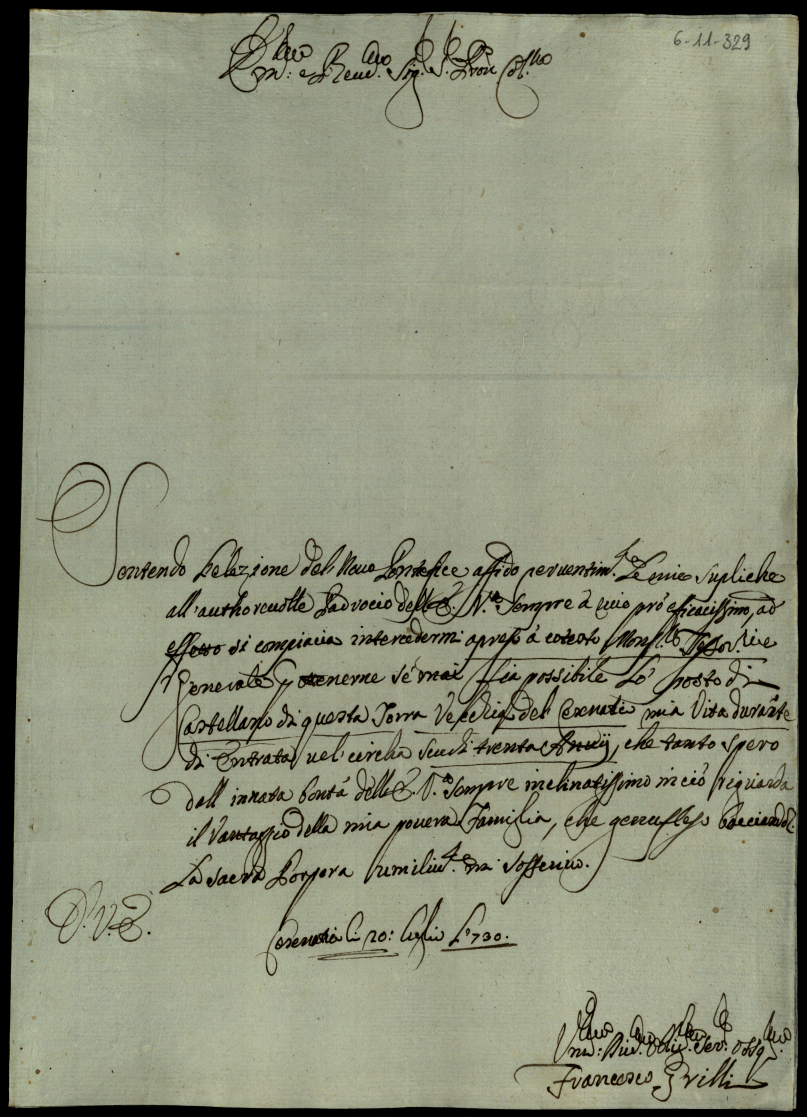 6-11-329
Em:mo e Reud:mo Sig.r S.r Pron Col:mo
Sentendo l'elezione del Nouo Pontefice affido reuerentim.te Le mie supliche
all'authoreuolle Padrocio dell'E. V.ra sempre à mio prò eficacissimo, ad
effetto si compiacia intercedermi apresso à cotesto Mons.re Tesor.iere
Generale p otenerne se mai sia possibile Lo posto di
Castellano di questa Torra Vechia del Cesenatico mia Vita durante
di Entrata nel circha scudi trenta Annuj, che tanto spero
dall'innata bontà dell'E. V.a sempre inclinatissimo in ciò riguarda
il Vantaggio della mia pouera Famiglia, che genuflesso bacciandol
La sacra Porpora umilm.te mi soffermo.
D. V. E.
li 20: luglio 1730.
Um:mo Diu:mo Oblig:mo Ser:re Ossq:mo
Francesco Grilli